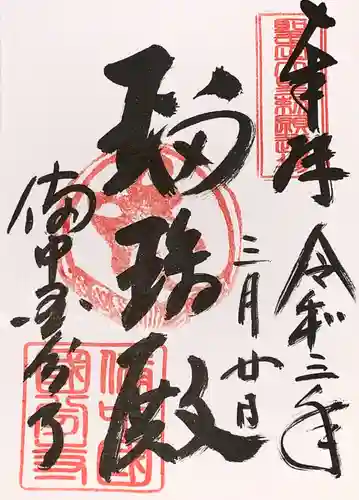 奉拝
令和三年
三月廿日
瑠璃殿
備中国分寺